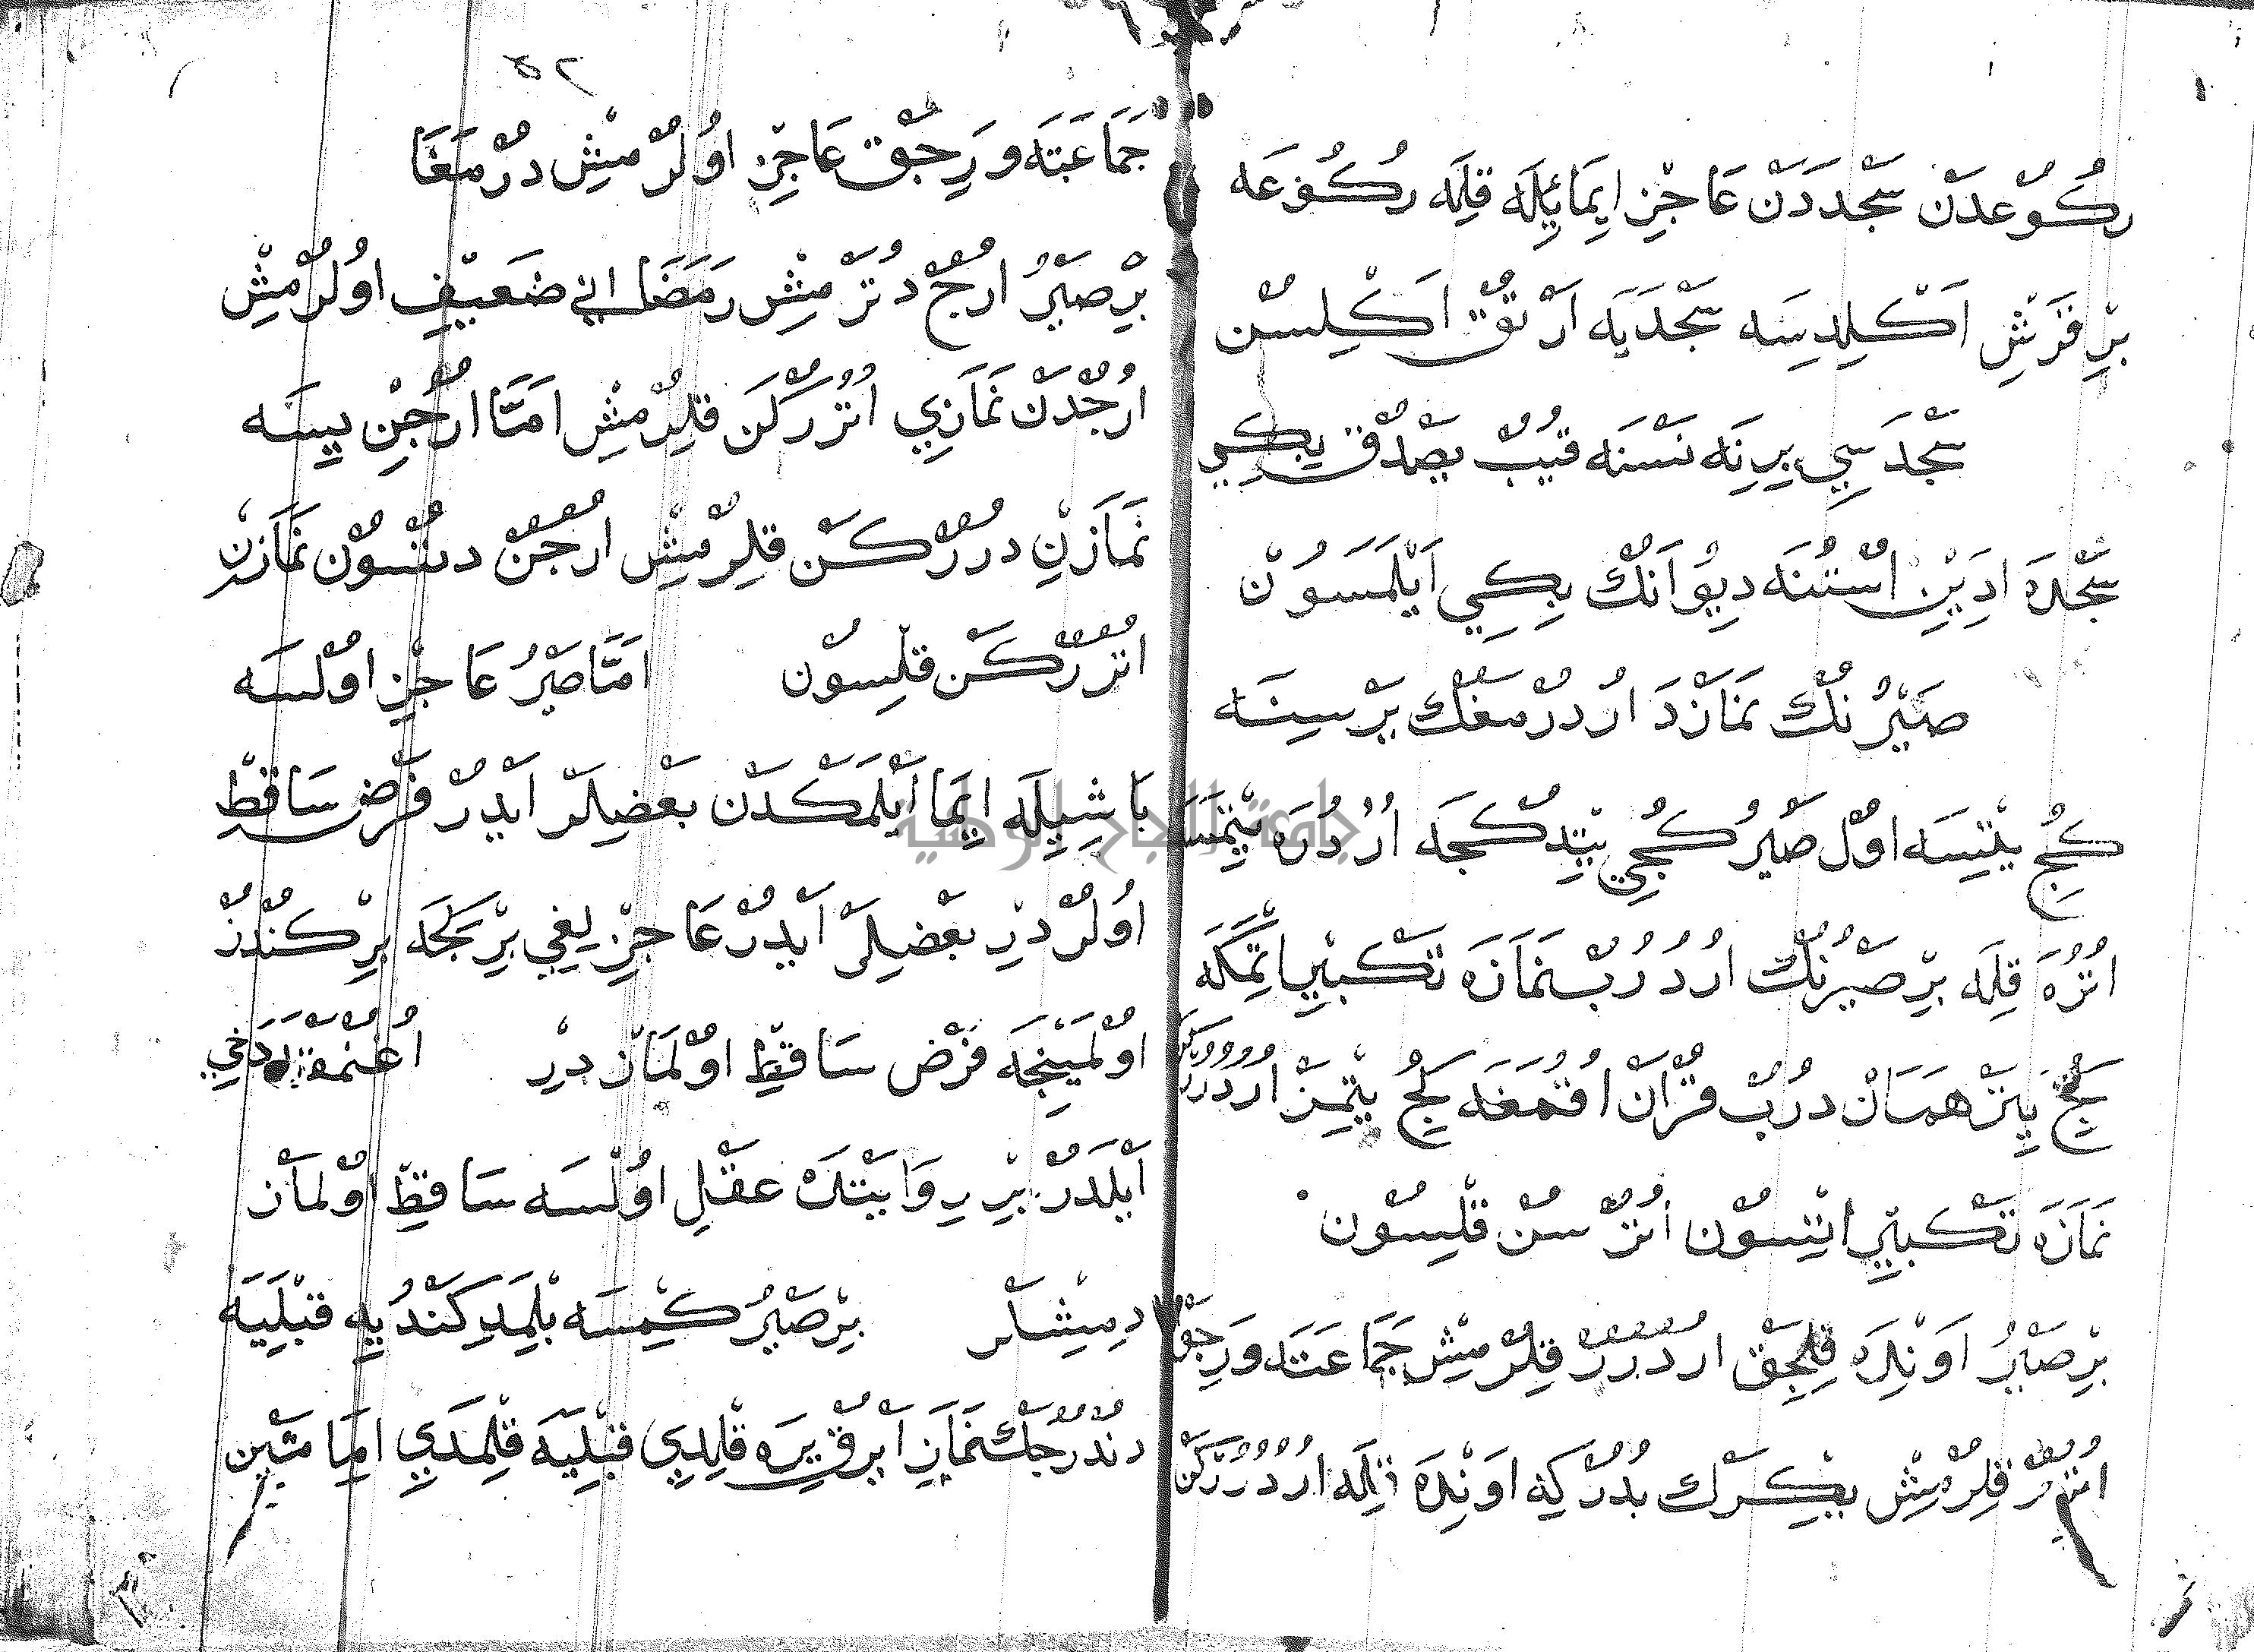 رُكُوْعدَنْ سَجْدَدَنْ عَاجْزِ اِيمَائِلَه قِلَه رُكُوعَه
بِرْ فَرَشْ اَكْلِدِسَه سَجْدَيَه اَرْتُقْ اَكْلِسُنْ
سَجْدَسِي يِرِنَه نَسْنَه قيُبْ يَصْدُقْ بِكِي
سَجْدَه اِدَيْنِ اُسْتُنَه دِيوَانُكْ بِكِي اَيْلَمَسُونْ
صَيْرُنُكْ نَمَازْدَ اُرُدُرْمَغُكْ بَرْسِنَه
كُجِ يِتِسَه اُولْ صَيْرُ كُجِي يِتِدُكْجَه اُرُدُرَه يِتِمَسَا
اُتُرَه قِلَه بِرْ صَيْرُنُكْ اُرُدُرُبْ نَمَازَه تَكْبِيرِ اِتْمَكَه
كُجِ يِتَرْ هَمَانْ دُرُبْ قُرْاَنْ اُقُمَغَه كُجُ يِتْمِزْ اُرُدُرُرْكَنْ
نَمَازَه تَكْبِيرِ اِتْسُونْ اُتُرْسُنْ قِلْسُونْ
بِرْ صَيْرُ اَوِنْدَه قِلِجِقْ اُرُدُرُرْ قِلُرْمِشْ جَمَاعَتَه وَرِجَقْ
اُتُرُرْ قِلُرْمِشْ يِكِرَكْ بُدُرْكِه اَوِنْدَه قِلَه اُرُدُرُرْكَنْ
٥٢
جَمَاعَتَه وَرِجَقْ عَاجِزْ اُولُرْمِشْ دُرْمَغَا
بِرْ صَيْرُ اُرُجْ دُتَرْمِشْ رَمَضَانِي ضَعِيْفِ اُولُرْمِشْ
اُرُجْدَنْ نَمَازِي اُتُرُرْكَنْ قِلُرْمِشْ اَمَّا اُرُجِنْ يِيسَه
نَمَازْنِ دُرُرْكَنْ قِلُرْمِشْ اُرُجُنْ دُتْسُونْ نَمَازْنِ
اُتُرُرْكَنْ قِلْسُونْ اَمَّا صَيْرُ عَاجْزِ اُولْسَه
بَاشِيلَه اِيمَا اَيْلَمَكْدَنْ بَعْضِيلَرْ اَيْدُرْ فَرْضِ سَاقِطْ
اُولُرْ دِرْ بَعْضِيلَرْ اَيْدُرْ عَاجِزْلِيغِي بِرْ كَجَه بِرْ كُنْدُزْ
اُولْمَيِنْجَه فَرْضْ سَاقِطْ اُولْمَازْ دِرْ
اَيْلَدُرْ بِرْ رِوَايَتْدَه عَقْلِ اُولْسَه سَاقِطْ اُولْمَازْ
دِمِشْلَرْ بِرْ صَيْرُ كِيمْسَه بُلْمَدِ كَنْدُيِه قِبْلَيَه
دُنْدُرْجَكْ نَمَازِ اَيْرُقْ يِرَه قِلْدِي قِبْلَيَه قِلْمَدِي